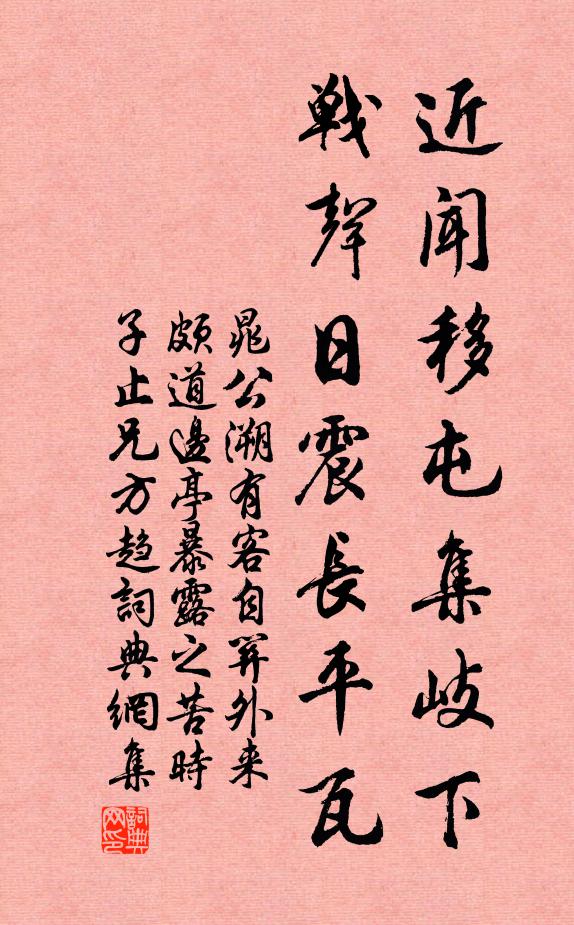 近聞移屯集岐下
戦聲日震長平瓦
晁公溯有客自關外来
頗道邊亭暴露之苦時
子止兄方趋詞典網集
詞典网印